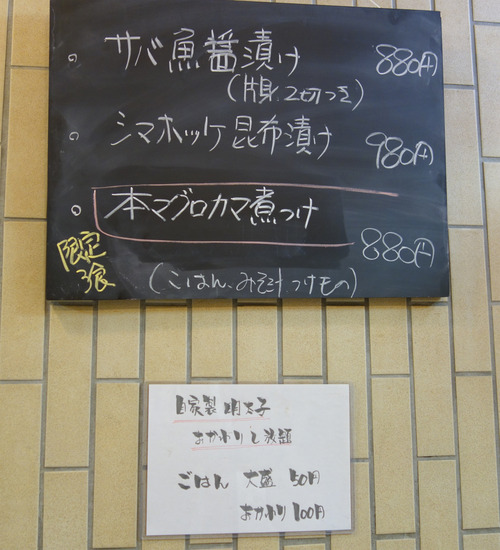 サバ魚醤漬け 880円
(片身、2切つき)
シマホッケ昆布漬け 980円
本マグロカマ煮つけ 880円
限定
3食
(ごはん、みそ汁つけもの)
自家製明太子
おかわりし放題
ごはん 大盛 50円
おかわり 100円